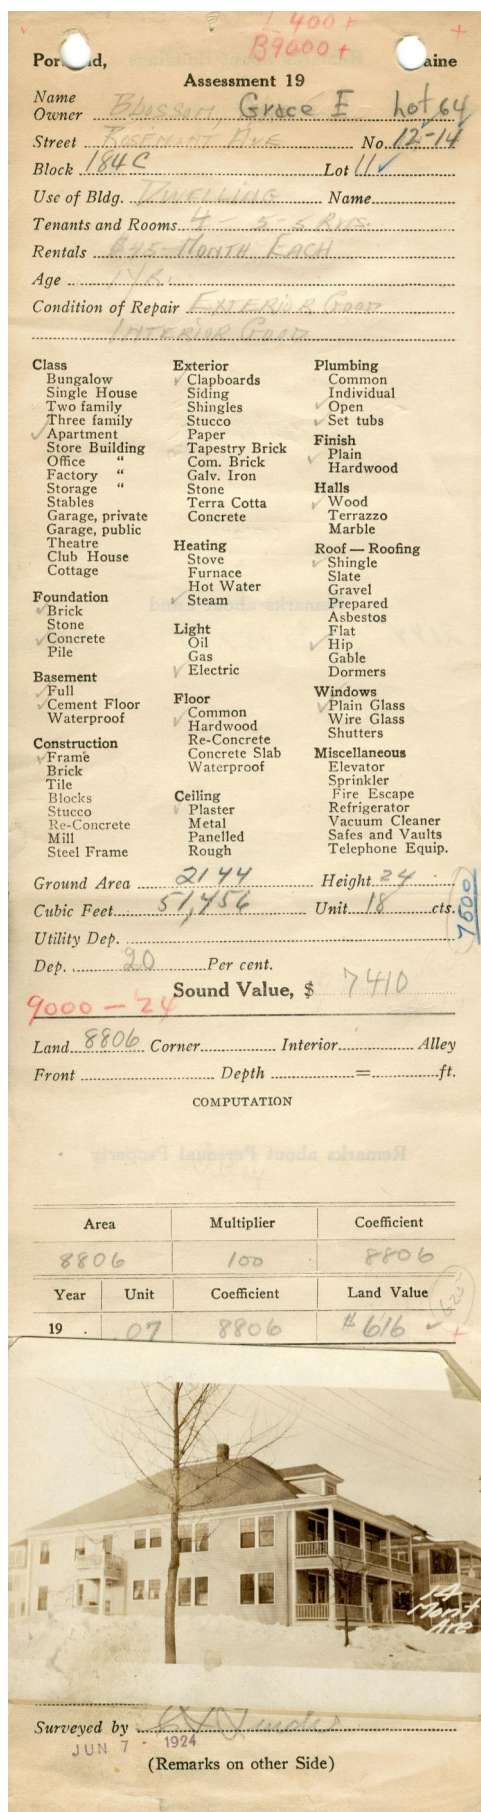 L 400 +
B9000 +
Portland, Maine
Assessment 19
Name
Owner Blossom, Grace E Lot 64
Street Rosemont Ave No. 12-14
Block 184C Lot 11
Use of Bldg. Dwelling Name
Tenants and Rooms 4 - 5-5 Rms.
Rentals $45-Month Each
Age 1 Yr.
Condition of Repair Exterior Good
Interior Good
Class
Bungalow
Single House
Two family
Three family
✓ Apartment
Store Building
Office "
Factory "
Storage "
Stables
Garage, private
Garage, public
Theatre
Club House
Cottage
Foundation
✓ Brick
Stone
✓ Concrete
Pile
Basement
✓ Full
✓ Cement Floor
Waterproof
Construction
✓ Frame
Brick
Tile
Blocks
Stucco
Re-Concrete
Mill
Steel Frame
Exterior
✓ Clapboards
Siding
Shingles
Stucco
Paper
Tapestry Brick
Com. Brick
Galv. Iron
Stone
Terra Cotta
Concrete
Heating
Stove
Furnace
Hot Water
✓ Steam
Light
Oil
Gas
✓ Electric
Floor
✓ Common
Hardwood
Re-Concrete
Concrete Slab
Waterproof
Ceiling
✓ Plaster
Metal
Panelled
Rough
Plumbing
Common
Individual
✓ Open
✓ Set tubs
Finish
✓ Plain
Hardwood
Halls
✓ Wood
Terrazzo
Marble
Roof — Roofing
✓ Shingle
Slate
Gravel
Prepared
Asbestos
Flat
✓ Hip
Gable
Dormers
Windows
✓ Plain Glass
Wire Glass
Shutters
Miscellaneous
Elevator
Sprinkler
Fire Escape
Refrigerator
Vacuum Cleaner
Safes and Vaults
Telephone Equip.
Ground Area 2144 Height 24
Cubic Feet 51,456 Unit 18 cts.
7500
Utility Dep.
Dep. 20 Per cent.
Sound Value, $ 7410
9000 - '24
Land 8806 Corner Interior Alley
Front Depth = ft.
COMPUTATION
Remarks about Personal Property
Area Multiplier Coefficient
8806 100 8806
Year Unit Coefficient Land Value
625
19 . .07 8806 $616 ✓
14
Mont
Ave
Surveyed by
JUN 7 - 1924
(Remarks on other Side)